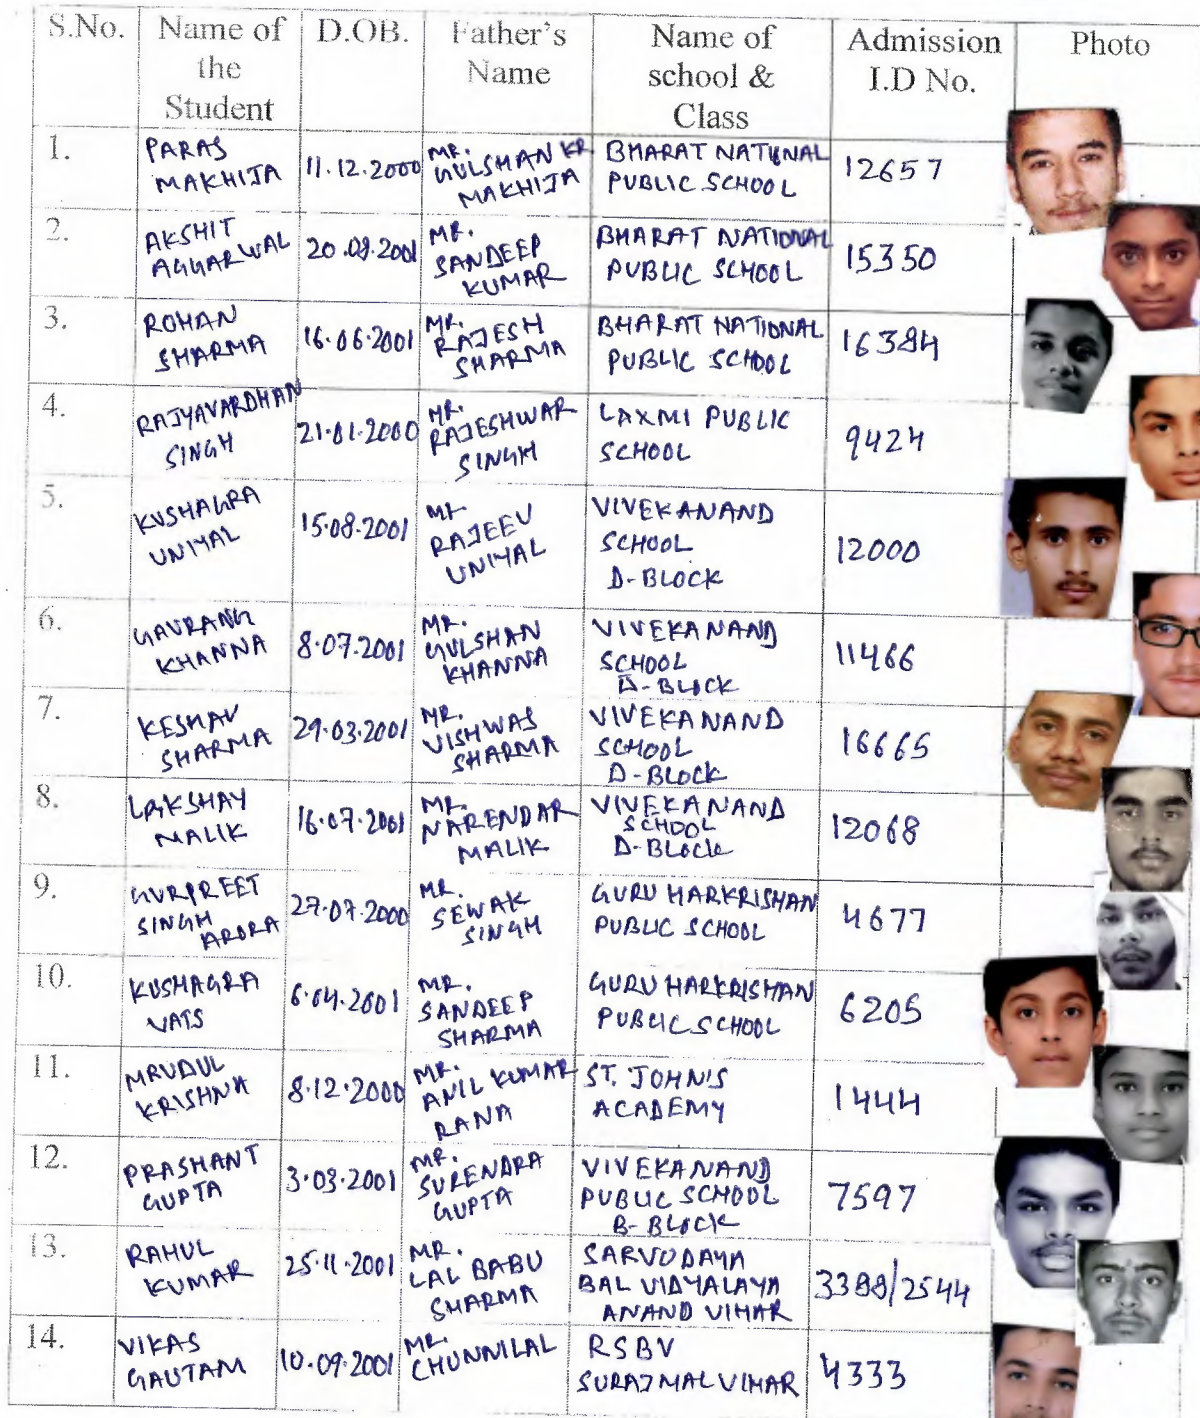 S.No. Name of the Student D.OB. Father's Name Name of school & Class Admission I.D No. Photo
1. PARAS MAKHIJA 11.12.2000 MR. GULSHAN KR MAKHIJA BHARAT NATIONAL PUBLIC SCHOOL 12657
2. AKSHIT AGGARWAL 20.09.2001 MR. SANDEEP KUMAR BHARAT NATIONAL PUBLIC SCHOOL 15350
3. ROHAN SHARMA 16.06.2001 MR. RAJESH SHARMA BHARAT NATIONAL PUBLIC SCHOOL 16384
4. RAJYAVARDHAN SINGH 21.01.2000 MR. RAJESHWAR SINGH LAXMI PUBLIC SCHOOL 9424
5. KUSHAGRA UNIYAL 15.08.2001 MR RAJEEV UNIYAL VIVEKANAND SCHOOL D-BLOCK 12000
6. GAURANG KHANNA 8.07.2001 MR. GULSHAN KHANNA VIVEKANAND SCHOOL D-BLOCK 11466
7. KESHAV SHARMA 29.03.2001 MR. VISHWAS SHARMA VIVEKANAND SCHOOL D-BLOCK 16665
8. LAKSHAY MALIK 16.07.2001 MR. NARENDAR MALIK VIVEKANAND SCHOOL D-BLOCK 12068
9. GURPREET SINGH ARORA 27.07.2000 MR. SEWAK SINGH GURU HARKRISHAN PUBLIC SCHOOL 4677
10. KUSHAGRA VATS 6.04.2001 MR. SANDEEP SHARMA GURU HARKRISHAN PUBLIC SCHOOL 6205
11. MRUDUL KRISHNA 8.12.2000 MR. ANIL KUMAR RANA ST. JOHN'S ACADEMY 1444
12. PRASHANT GUPTA 3.03.2001 MR. SURENDRA GUPTA VIVEKANAND PUBLIC SCHOOL B-BLOCK 7597
13. RAHUL KUMAR 25.11.2001 MR. LAL BABU SHARMA SARVODAYA BAL VIDYALAYA ANAND VIHAR 3388/2544
14. VIKAS GAUTAM 10.09.2001 MR. CHUNNILAL RSBV SURAJMAL VIHAR 4333